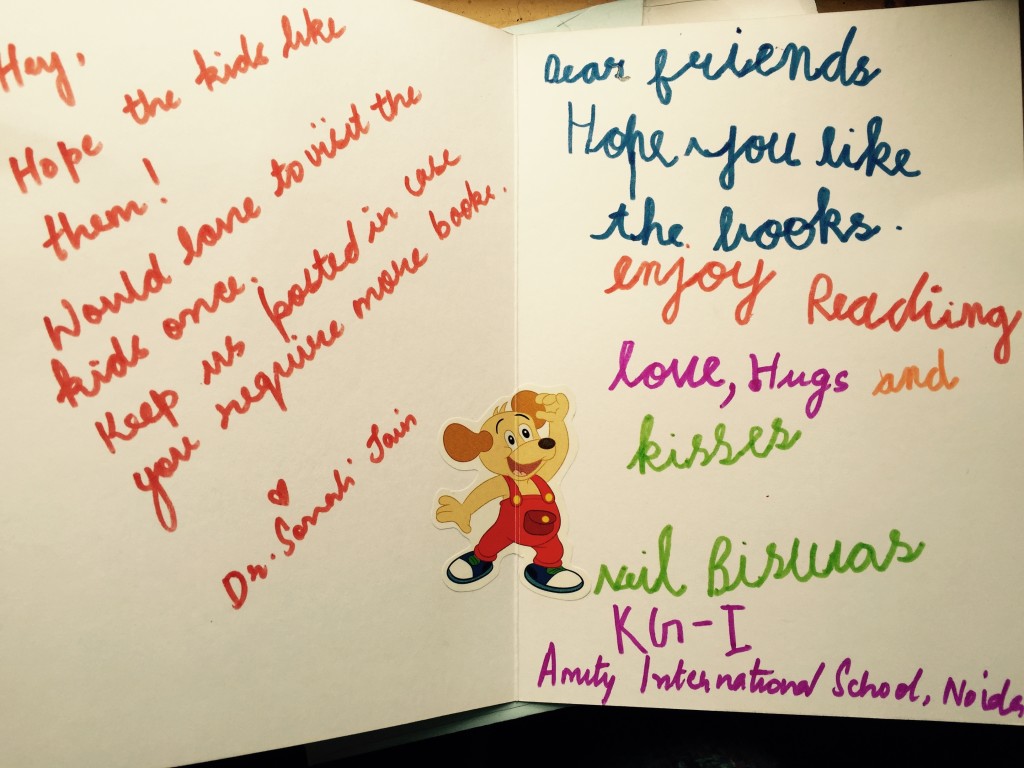 Hey,
Hope the kids like
them!
Would love to visit the
kids once.
Keep us posted in case
you require more books.
Dr. Sonali Jain
Dear friends
Hope you like
the books.
enjoy Reading
love, Hugs and
kisses
Neil Biswas
KG-I
Amity International School, Noida